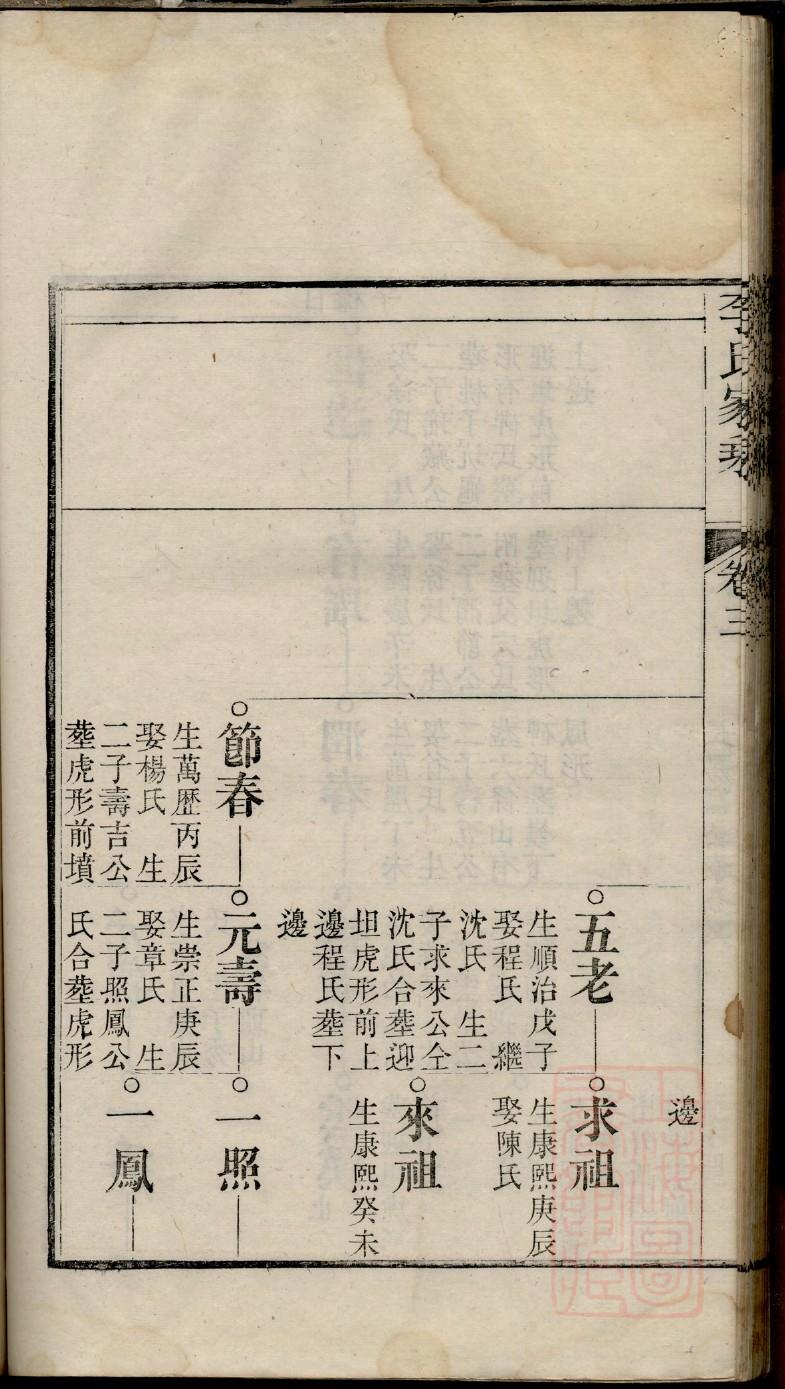 李氏家乘
卷三
邊
五老
生順治戊子
娶程氏 繼
沈氏 生二
子求來公仝
沈氏合塟迎
坦虎形前上
邊程氏塟下
邊
求祖
生康熙庚辰
娶陳氏
來祖
生康熙癸未
節春
生萬歷丙辰
娶楊氏 生
二子壽吉公
塟虎形前墳
元壽
生崇正庚辰
娶章氏 生
二子照鳳公
氏合塟虎形
一照
一鳳